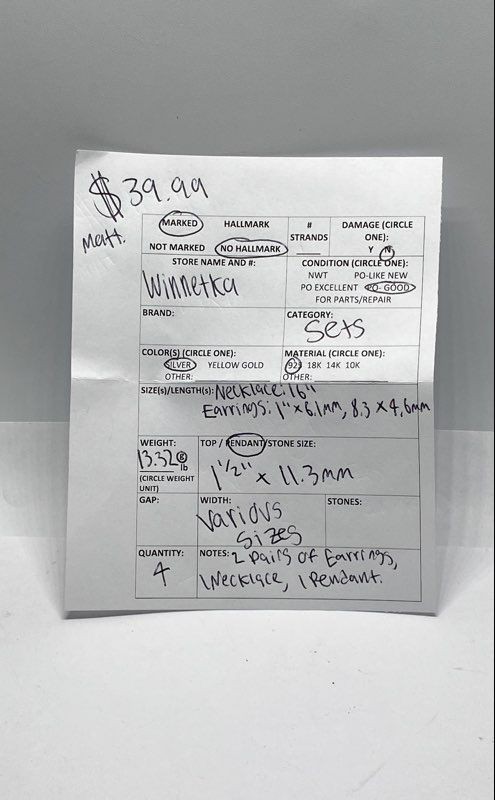 $39.99
Matt.
MARKED HALLMARK
NOT MARKED NO HALLMARK
# STRANDS
DAMAGE (CIRCLE ONE):
Y N
STORE NAME AND #:
Winnetka
CONDITION (CIRCLE ONE):
NWT PO-LIKE NEW
PO EXCELLENT PO- GOOD
FOR PARTS/REPAIR
BRAND:
CATEGORY:
Sets
COLOR(S) (CIRCLE ONE):
SILVER YELLOW GOLD
OTHER:
MATERIAL (CIRCLE ONE):
925 18K 14K 10K
OTHER:
SIZE(s)/LENGTH(s): Necklace: 16"
Earrings: 1" x 6.1mm, 8.3 x 4.6mm
WEIGHT:
13.32 g
lb
(CIRCLE WEIGHT UNIT)
TOP / PENDANT/STONE SIZE:
1 1/2" x 11.3mm
GAP:
WIDTH:
Various
Sizes
STONES:
QUANTITY:
4
NOTES: 2 Pairs of Earrings,
1 Necklace, 1 Pendant.